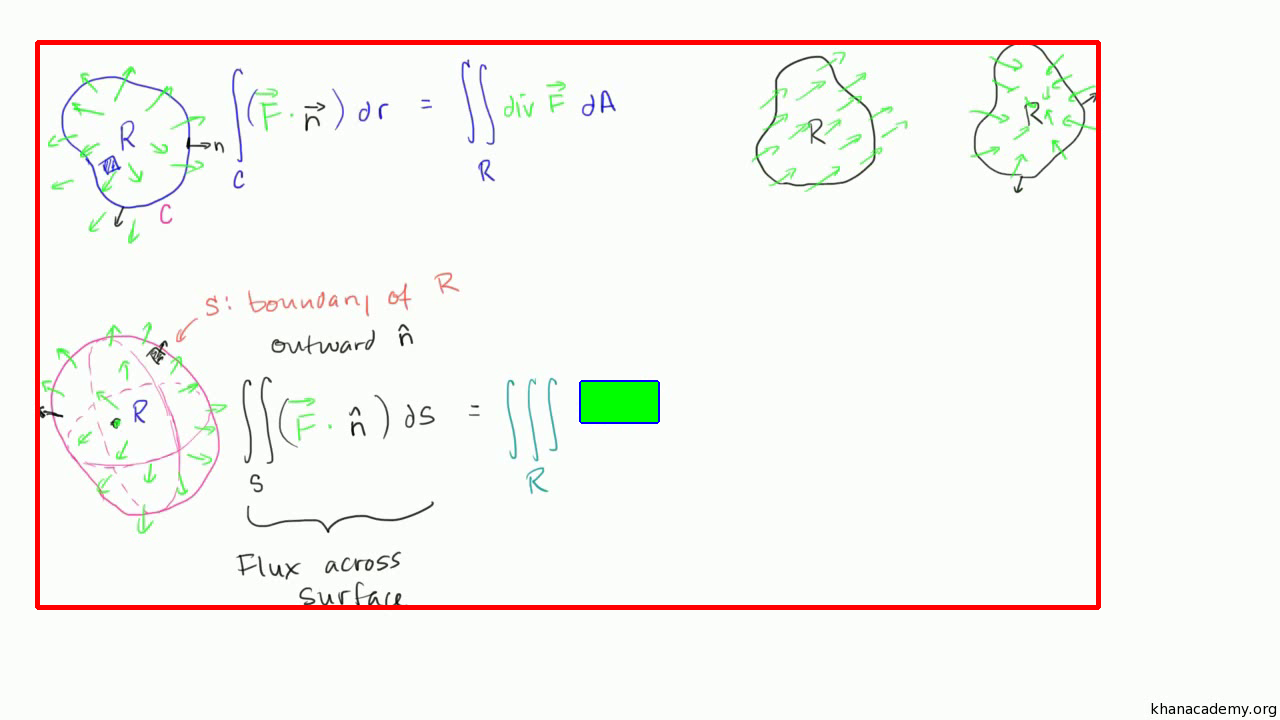 R
n
C
∫_C (F⃗ · n⃗) dr = ∬_R div F⃗ dA
R
R
S: boundary of R
outward n̂
R
∬_S (F⃗ · n̂) dS = ∭_R
Flux across
surface
khanacademy.org